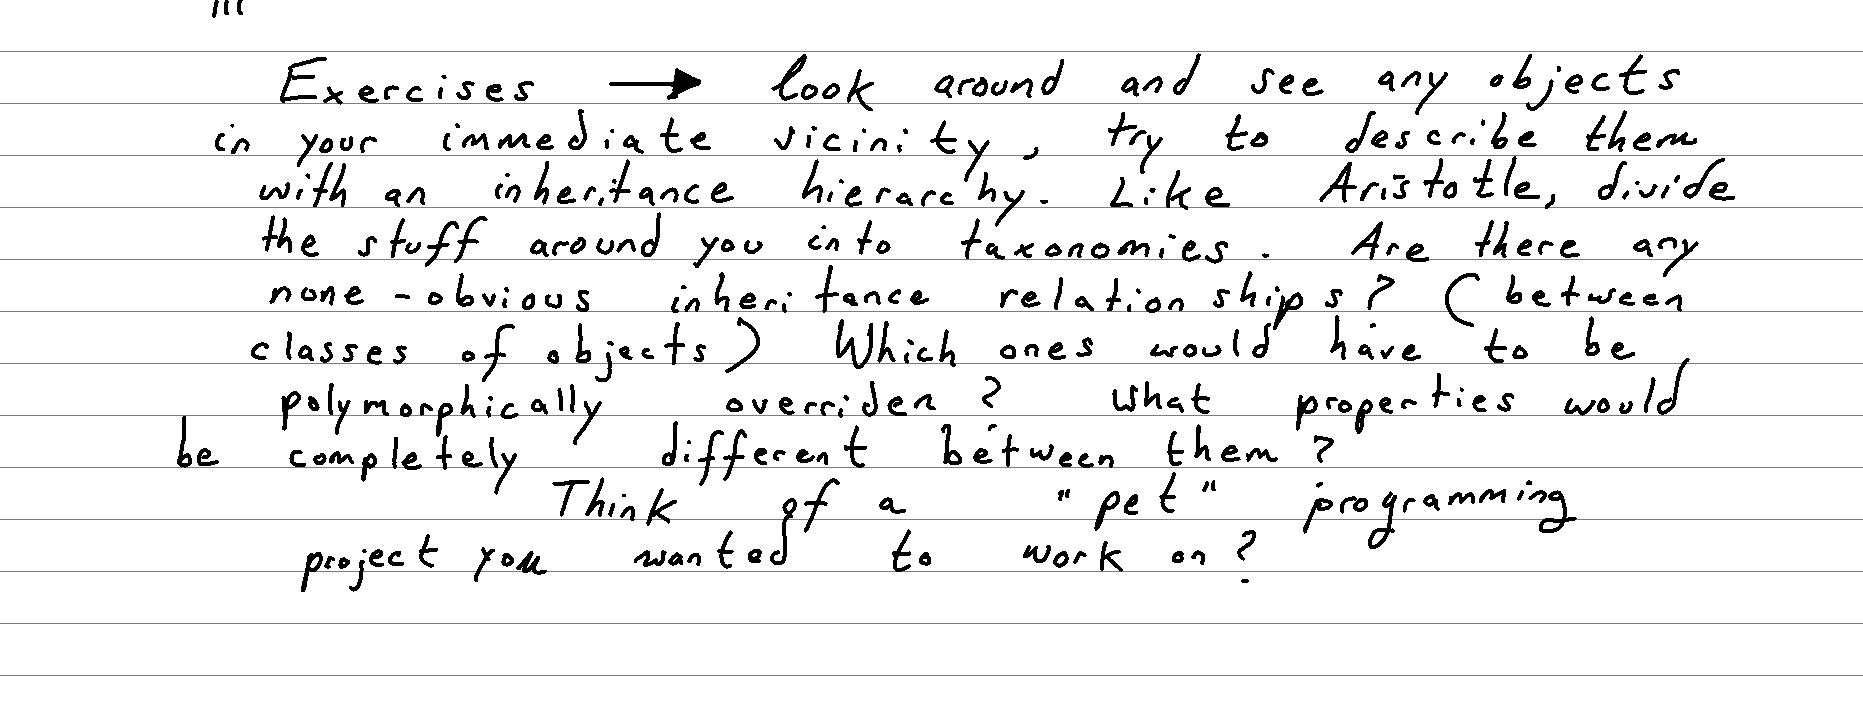 Exercises → look around and see any objects
in your immediate vicinity, try to describe them
with an inheritance hierarchy. Like Aristotle, divide
the stuff around you into taxonomies. Are there any
none-obvious inheritance relationships? (between
classes of objects) Which ones would have to be
polymorphically overriden? What properties would
be completely different between them?
Think of a "pet" programming
project you wanted to work on?